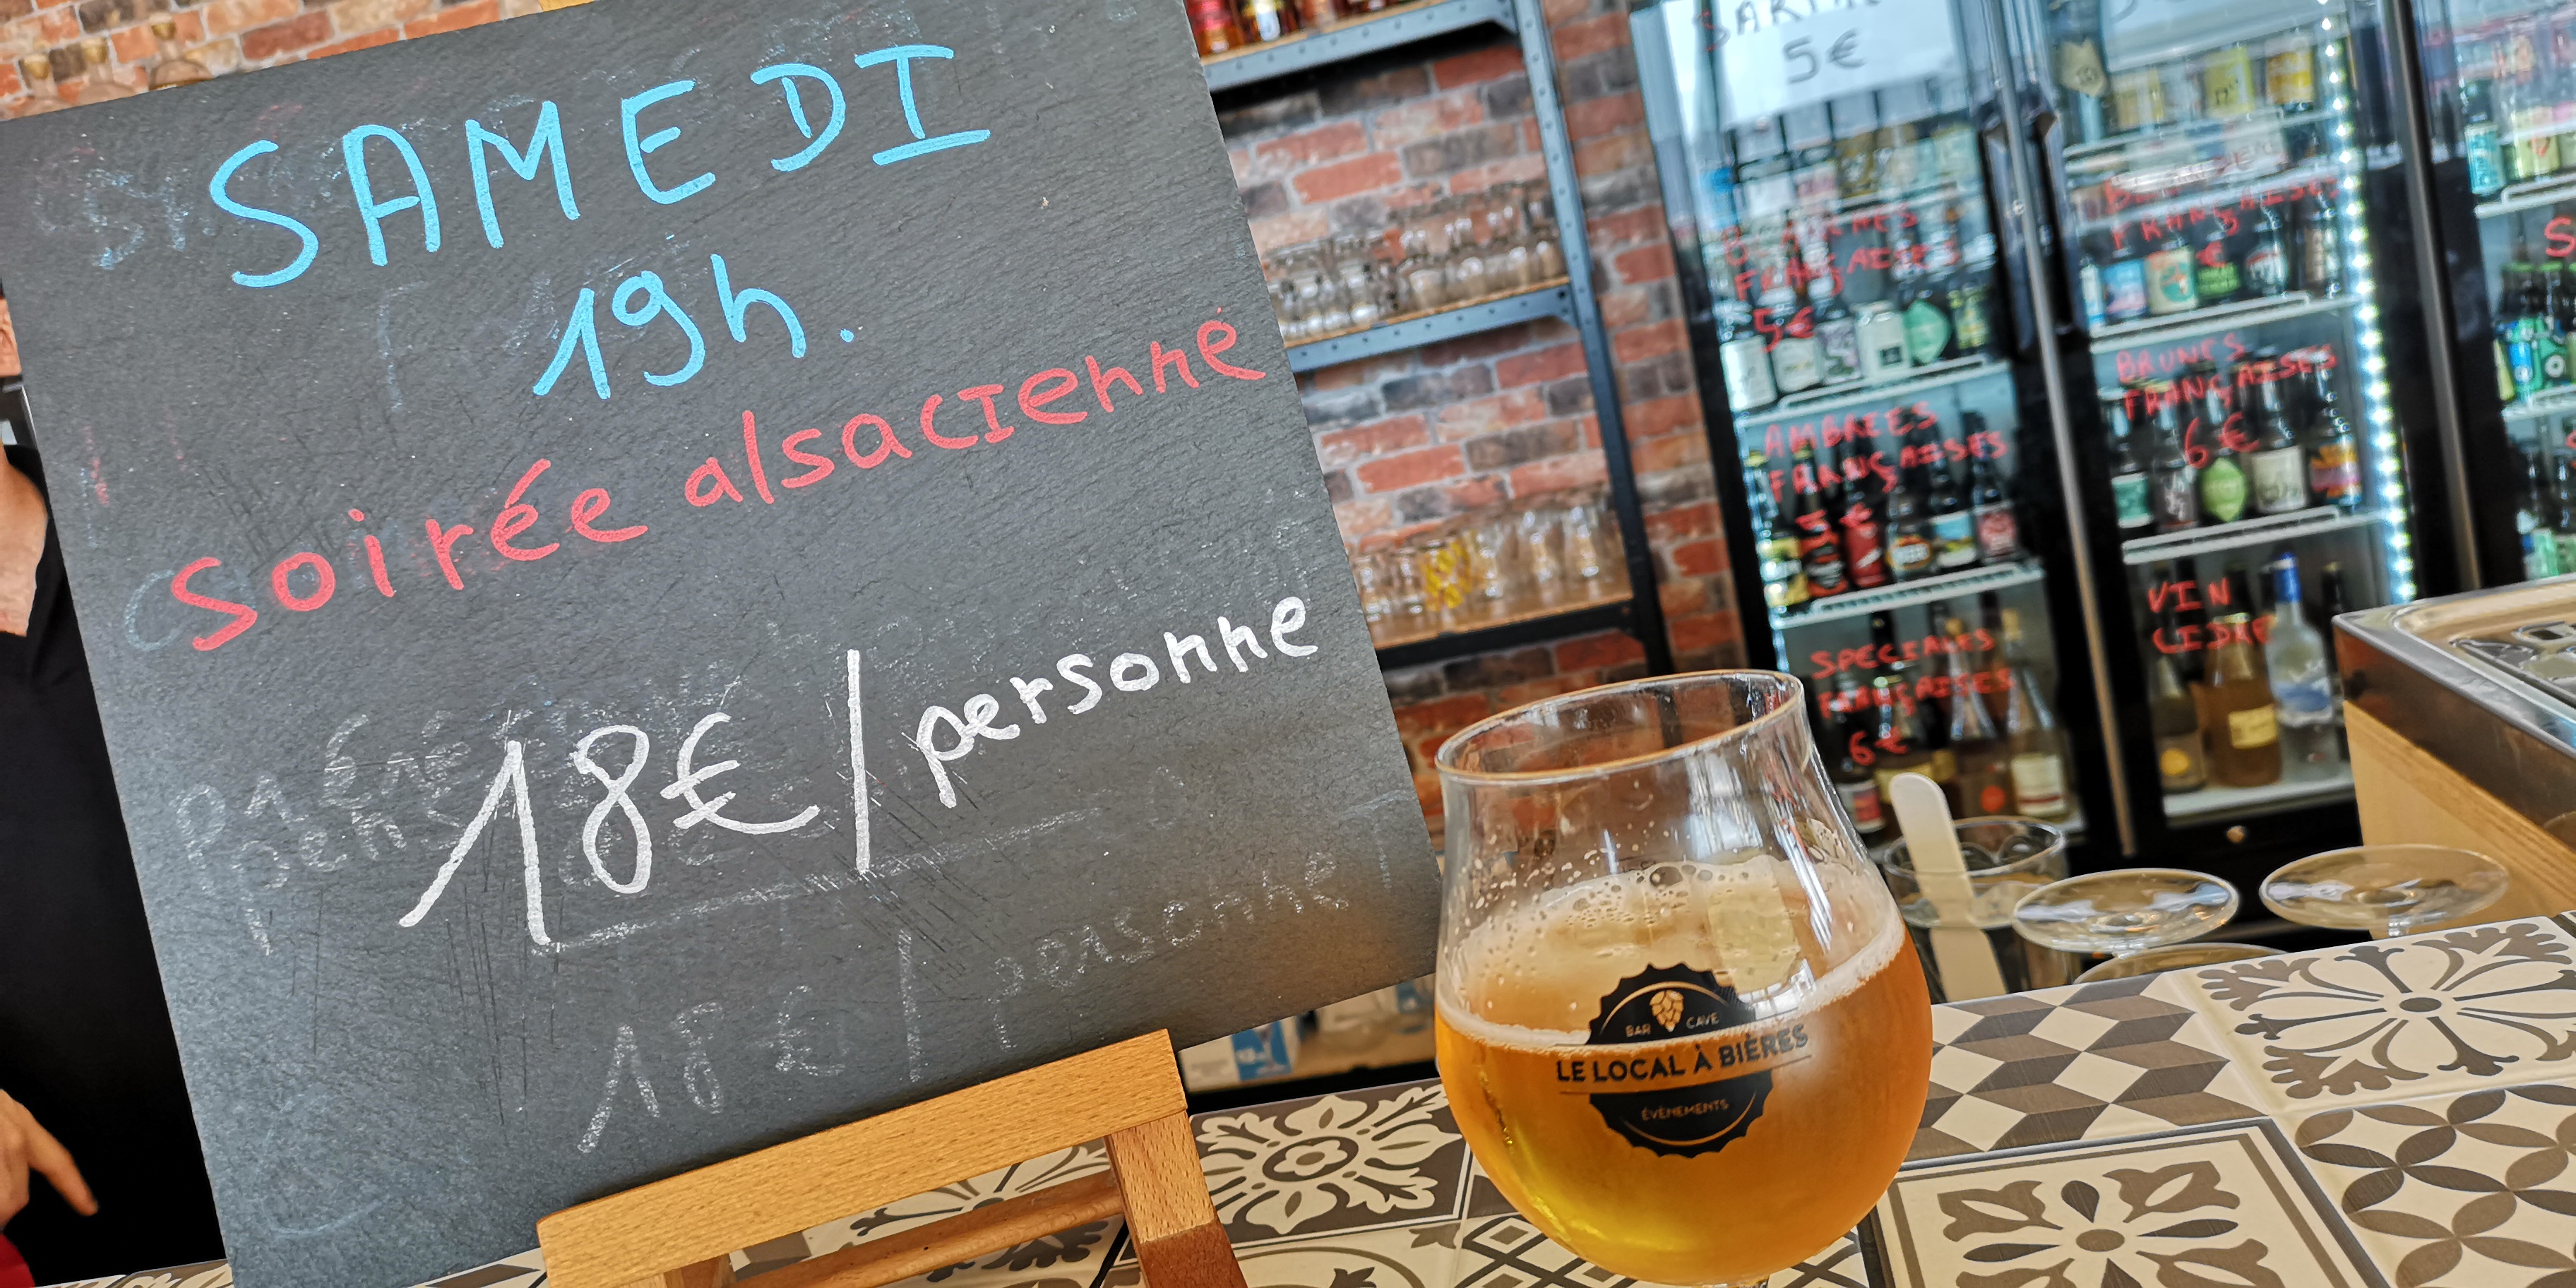 SAMEDI
19h.
Soirée alsacienne
18€/personne
18€/personne
BAR CAVE
LE LOCAL À BIÈRES
ÉVÈNEMENTS
5€
FRANÇAISES
5€
AMBREES
FRANÇAISES
5€
SPECIALES
FRANÇAISES
6€
FRANÇAISES
€
BRUNES
FRANÇAISES
6€
VIN
CIDRE